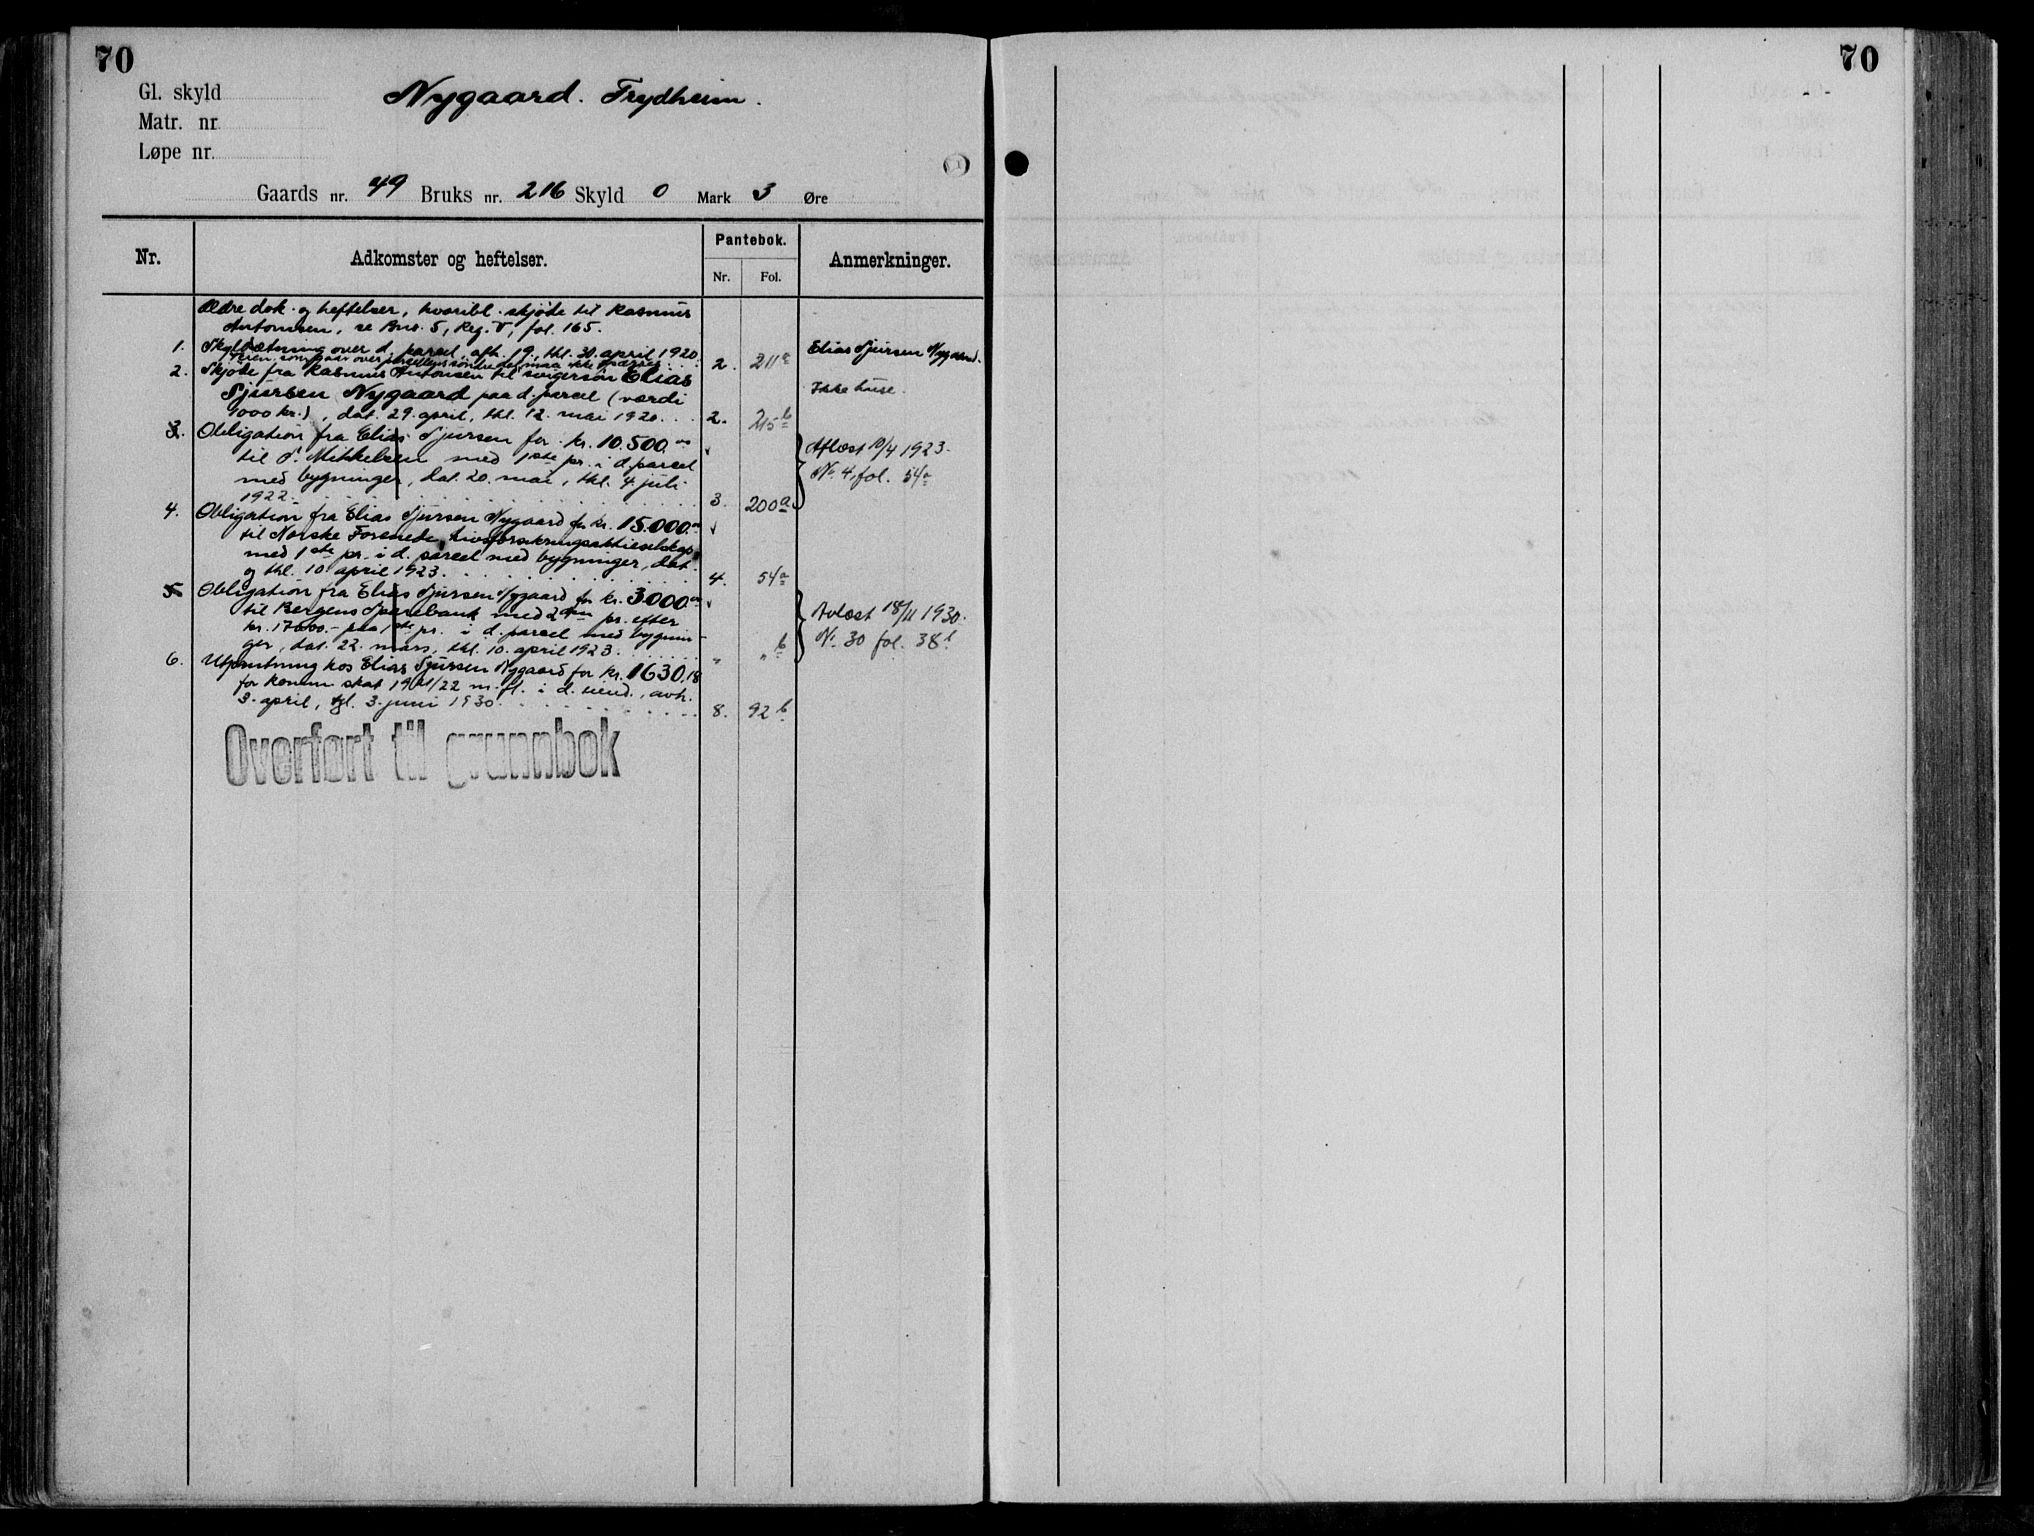 70
70
Gl. skyld
Nygaard. Frydheim.
Matr. nr
Løpe nr.
Gaards nr. 49 Bruks nr. 216 Skyld 0 Mark 3 Øre
Nr.
Adkomster og heftelser.
Pantebok.
Nr. Fol.
Anmerkninger.
Ældre dok. og heftelser, hvoribl. skjøte til Rasmus
Antonsen, se Bnr. 5, Reg. V, fol. 165.
1. Skyldsætning over d. parcel, afh. 19., thl. 30. april 1920. 2. 211a Elias Sjursen Nygaard.
som gaar over parcellens søndre del maa ikke spærres
2. Skjøte fra Rasmus Antonsen til svigersøn Elias Ikke huse.
Sjursen Nygaard paa d. parcel (værdi
1000 kr.), dat. 29. april, thl. 12. mai 1920. 2. 215b
3. Obligation fra Elias Sjursen for kr. 10.500.00 Aflæst 10/4 1923.
til S. Mikkelsen med 1ste pr. i d. parcel
med bygninger, dat. 20. mai, thl. 4. juli No. 4, fol. 54a
1922. 3. 200a
4. Obligation fra Elias Sjursen Nygaard for kr. 15.000.00
til Norske Forenede Livsforsikringsaktieselskap
med 1ste pr. i d. parcel med bygninger, dat.
og thl. 10. april 1923. 4. 54a
5. Obligation fra Elias Sjursen Nygaard for kr. 3000.00
til Bergens Sparebank med 2den pr. efter Avlæst 18/11 1930.
kr. 17000.- paa 1ste pr. i d. parcel med bygnin- No. 30 fol. 38b
ger, dat. 22. mars, thl. 10. april 1923. " " b
6. Utpantning hos Elias Sjursen Nygaard for kr. 1630,18
for komm. skat 1921/22 m. fl. i d. eiend., avh.
3. april, tgl. 3. juni 1930. 8. 92b
Overført til grunnbok